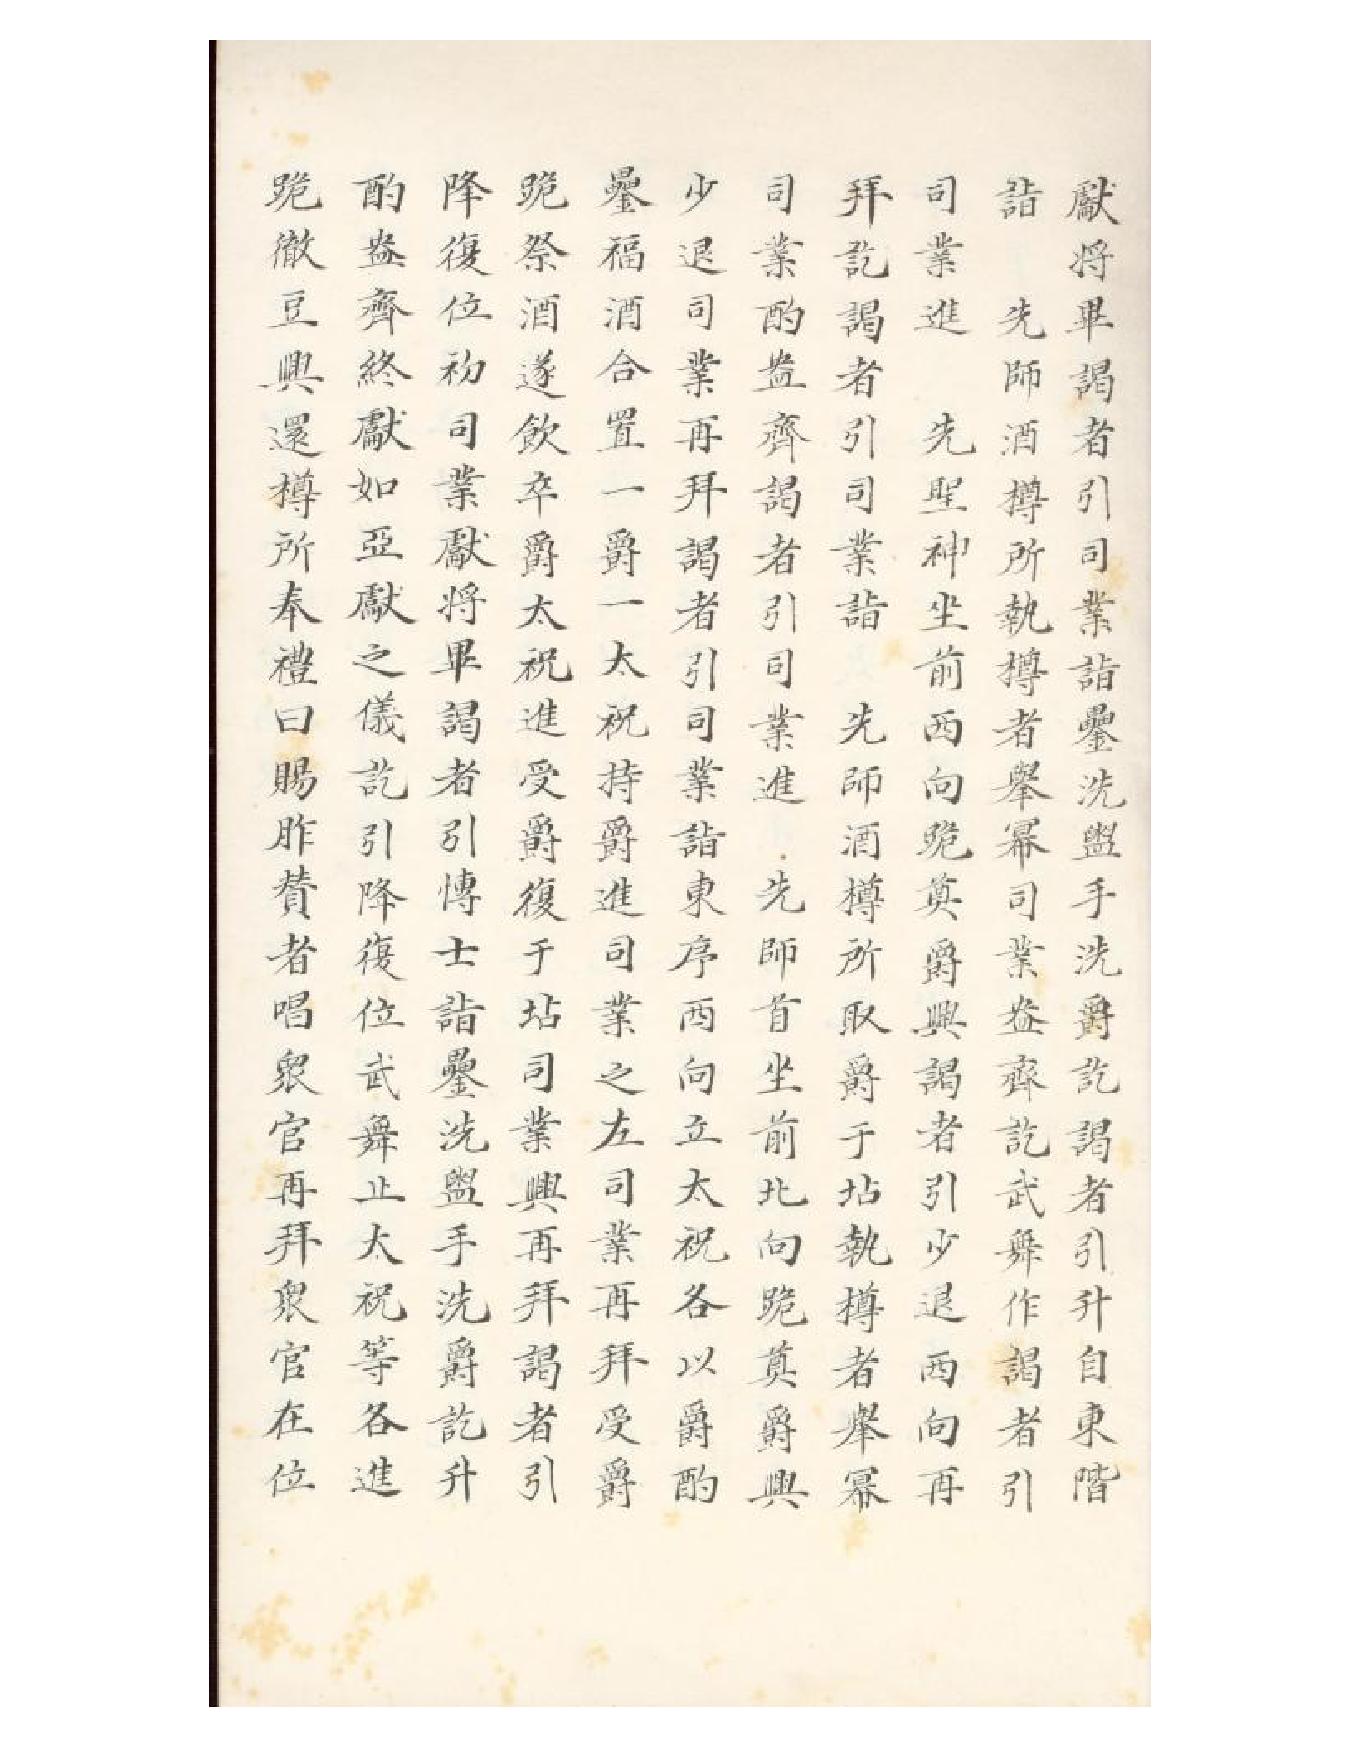 獻將畢謁者引司業詣罍洗盥手洗爵訖謁者引升自東階
詣　先師酒樽所執樽者舉冪司業盎齊訖武舞作謁者引
司業進　先聖神坐前西向跪奠爵興謁者引少退西向再
拜訖謁者引司業詣　先師酒樽所取爵于坫執樽者舉冪
司業酌盎齊謁者引司業進　先師首坐前北向跪奠爵興
少退司業再拜謁者引司業詣東序西向立太祝各以爵酌
罍福酒合置一爵一太祝持爵進司業之左司業再拜受爵
跪祭酒遂飲卒爵太祝進受爵復于坫司業興再拜謁者引
降復位初司業獻將畢謁者引博士詣罍洗盥手洗爵訖升
酌盎齊終獻如亞獻之儀訖引降復位武舞止大祝等各進
跪徹豆興還樽所奉禮曰賜胙贊者唱衆官再拜衆官在位